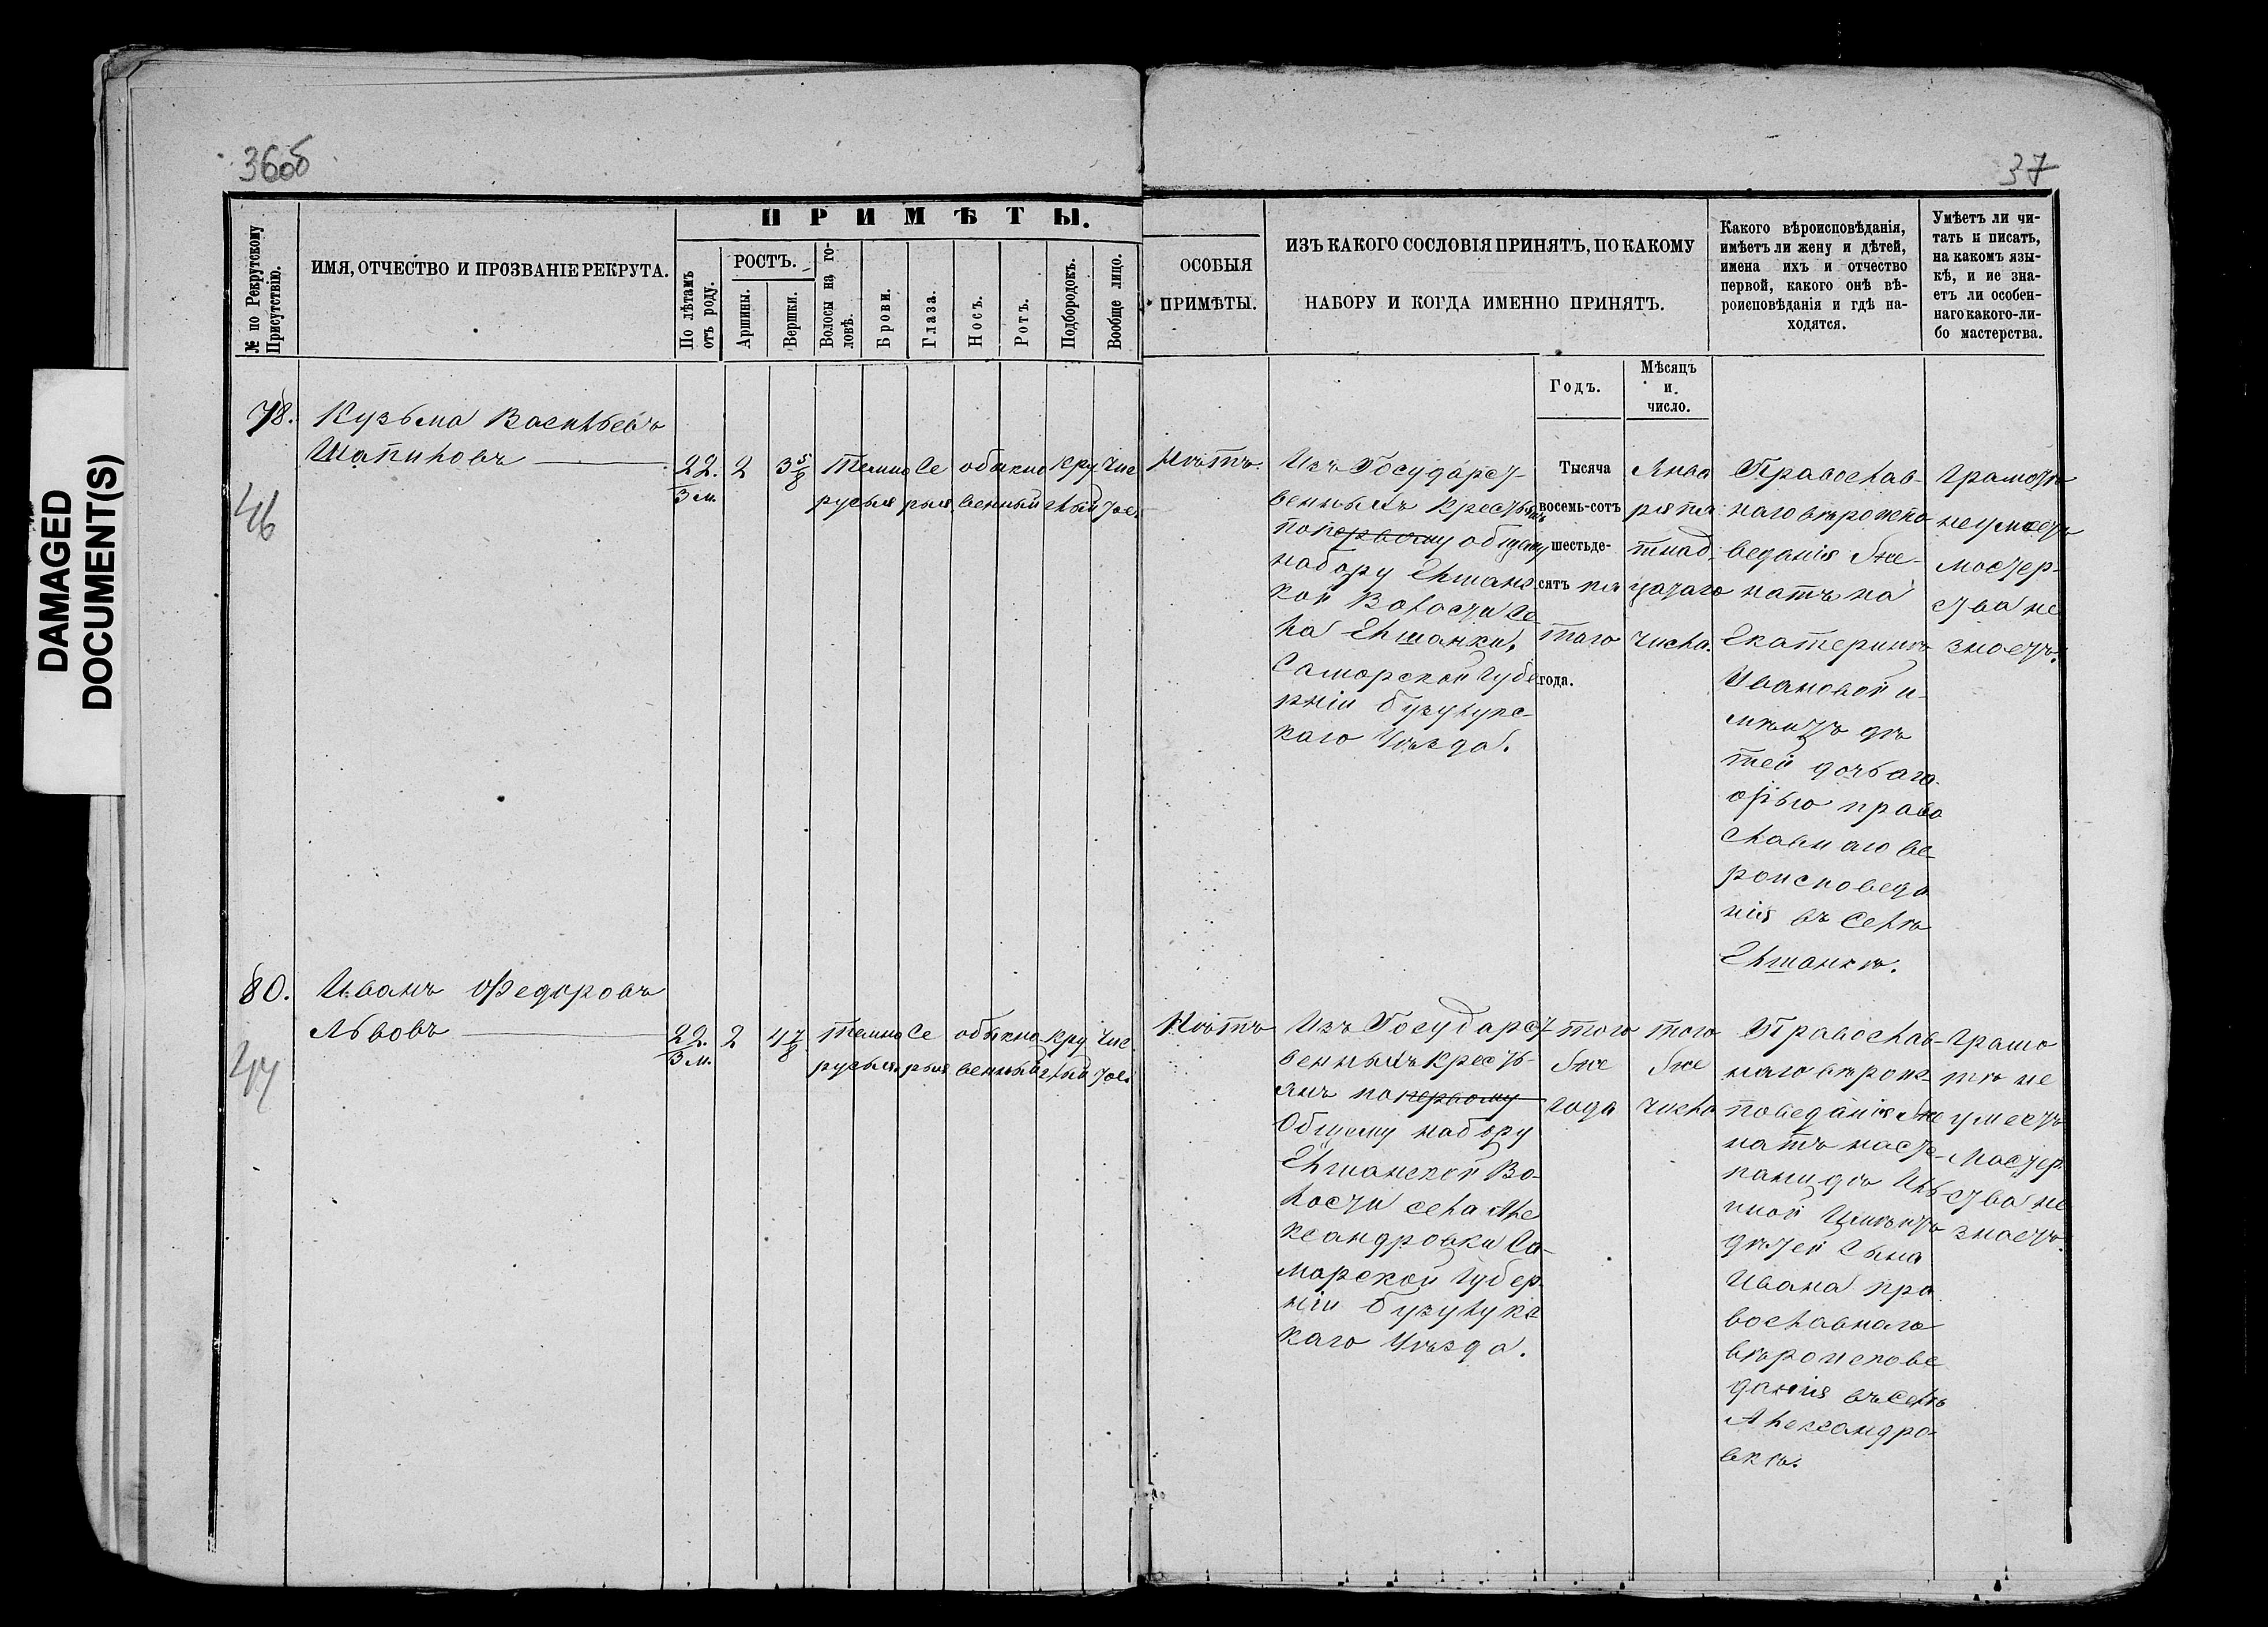 36об
37
DAMAGED
DOCUMENT(S)
№ по Рекрутскому
Присутствію.
ИМЯ, ОТЧЕСТВО И ПРОЗВАНІЕ РЕКРУТА.
ПРИМѢТЫ.
По лѣтамъ
отъ роду.
РОСТЪ.
Аршины.
Вершки.
Волосы на го-
ловѣ.
Брови.
Глаза.
Носъ.
Ротъ.
Подбородокъ.
Вообще лицо.
ОСОБЫЯ
ПРИМѢТЫ.
ИЗЪ КАКОГО СОСЛОВІЯ ПРИНЯТЪ, ПО КАКОМУ
НАБОРУ И КОГДА ИМЕННО ПРИНЯТЪ.
Годъ.
Мѣсяцъ
и
число.
Какого вѣроисповѣданія,
имѣетъ ли жену и дѣтей,
имена ихъ и отчество
первой, какого онѣ вѣ-
роисповѣданія и гдѣ на-
ходятся.
Умѣетъ ли чи-
тать и писать,
на какомъ язы-
кѣ, и не зна-
етъ ли особен-
наго какого-ли-
бо мастерства.
78.
46
Кузьма Васильевъ
Шапиловъ
22.
3 м.
2
3 5/8
темно
русыя
се
рыя
обыкно
венный
кру
глый
чис
тое.
Нѣтъ.
Изъ Государст-
венныхъ крестьянъ
по первому общему
набору Елшанс
кой Волости се
ла Елшанки,
Самарской Губе
рніи бузулукс-
каго Уѣзда.
Тысяча
восемь-сотъ
шестьде-
сятъ пя
таго
года.
Янва
ря пя
тнад
цатаго
числа.
Православ-
наго вѣроиспо
веданія же-
натъ на
Екатеринѣ
Ивановой и-
мѣитъ дѣ
тей дочь аго
офью право
славнаго ве-
роисповеда
нія въ Селѣ
Елшанкѣ.
Грамотѣ
неумеетъ
мастер-
ства не
знаетъ.
80.
44
Иванъ Федоровъ
Львовъ
22.
3 м.
2
4 7/8
темно
русыя
се
рыя
обыкно
венный
кру
глый
чис
тое.
Нѣтъ
Изъ Государст
венныхъ кресть-
янъ по первому
Общему набору
Елшанской Во-
лости села Але
ксандровки Са-
марской Губер
ніи бузулукс
каго Уѣзда.
того
же
года
того
же
числа
Православ-
наго вѣроис-
поведанія же
натъ насте-
панидѣ Иль
иной Имѣитъ
дѣтей Сына
Ивана пра
вославнаго
вѣроисповe
данія въ Селѣ
Александро-
вкѣ.
Грамо
тѣ не
умеетъ
Мастер
ства не
знаетъ.